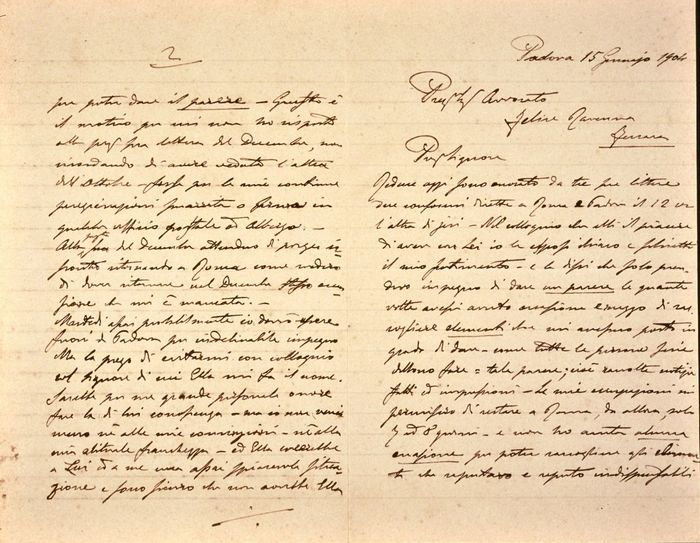 Padova 15 Gennajo 1904
Preg. Sig. Avvocato
Felice Ravenna
Ferrara
Pregiat. Signore
Reduce oggi sono onorato da tre sue lettere
due conformi dirette a Roma e Padova il 12 e
l'altra di jeri - Nel colloquio che ebbi il piacere
di avere con Lei io le esposi chiaro e schietto
il mio sentimento - e le dissi che solo pren
devo impegno di dare un parere le quante
volte avessi avuto occasione e mezzo di rac
cogliere elementi che mi avessero posto in
grado di dare - come tutte le persone serie
debbono fare = tale parere; cioè raccolte notizie
fatti ed impressioni - Le mie occupazioni mi
permisero di restare a Roma, da allora solo
7 od 8 giorni - e non ho avuta alcuna
occasione per poter raccogliere gli elemen
ti che reputavo e reputo indispensabili
2
per poter dare il parere - Questo è
il motivo per cui non ho risposto
alla preg. sua lettera del Decembre, non
ricordando di avere veduto l'altra
dell'Ottobre - forse per le mie continue
peregrinazioni smarrita o ferma in
qualche ufficio postale od Albergo. -
Alla sua del Decembre attendevo di porger ri
sposta ritornando a Roma come credevo
di dover ritornare nel Decembre stesso
che mi è mancata. -
Martedì assai probabilmente io dovrò essere
fuori di Padova per indeclinabile impegno
Ma la prego di evitarmi un colloquio
col Signore di cui Ella mi fa il nome.
Sarebbe per me grande personale onore
fare la di lui conoscenza - ma io non verrei
meno nè alle mie convinzioni - nè alla
mia abituale franchezza - ed Ella creerebbe
a Lui ed a me una assai spiacevole situa
zione e sono sicuro che non avrebbe Ella